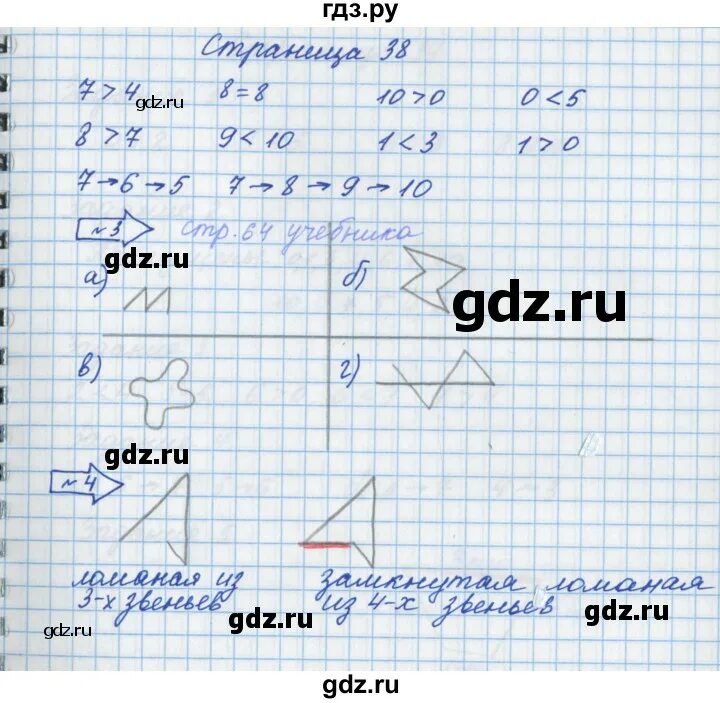 гдз.ру
Страница 38
7 > 4 8 = 8 10 > 0 0 < 5
gdz.ru
8 > 7 9 < 10 1 < 3 1 > 0
7 → 6 → 5 7 → 8 → 9 → 10
№3 стр. 64 учебника
gdz.ru
а) б)
gdz.ru
в) г)
gdz.ru
№4
ломаная из замкнутая ломаная
3-х звеньев из 4-х звеньев
gdz.ru gdz.ru gdz.ru
gdz.ru